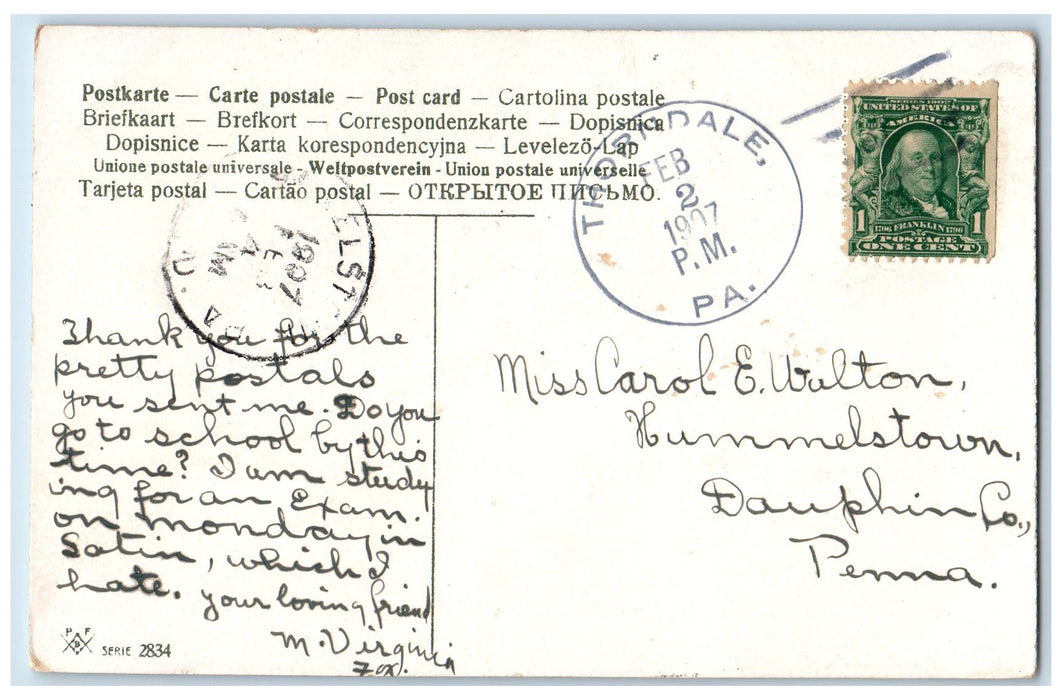 Postkarte — Carte postale — Post card — Cartolina postale
Briefkaart — Brefkort — Correspondenzkarte — Dopisnica
Dopisnice — Karta korespondencyjna — Levelező-Lap
Unione postale universale - Weltpostverein - Union postale universelle
Tarjeta postal — Cartão postal — ОТКРЫТОЕ ПИСЬМО.
THORNDALE,
FEB
2
1907
P.M.
PA.
SERIES 1902
UNITED STATES OF
AMERICA
1 1
1706 FRANKLIN 1790
POSTAGE
ONE CENT
1907
AM
PA
Thank you for the
pretty postals
you sent me. Do you
go to school by this
time? I am study
ing for an Exam.
on monday in
Satin, which I
hate. your loving friend
M. Virginia
Fox.
Miss Carol E. Walton,
Hummelstown,
Dauphin Co.,
Penna.
P F
B
SERIE 2834